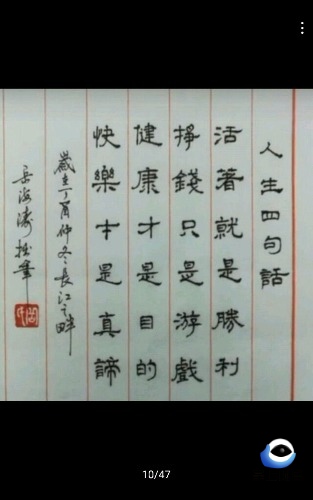 人生四句話
活著就是勝利
掙錢只是游戲
健康才是目的
快樂本是真諦
歲在丁酉仲冬長江之畔
海濤拙筆
10/47